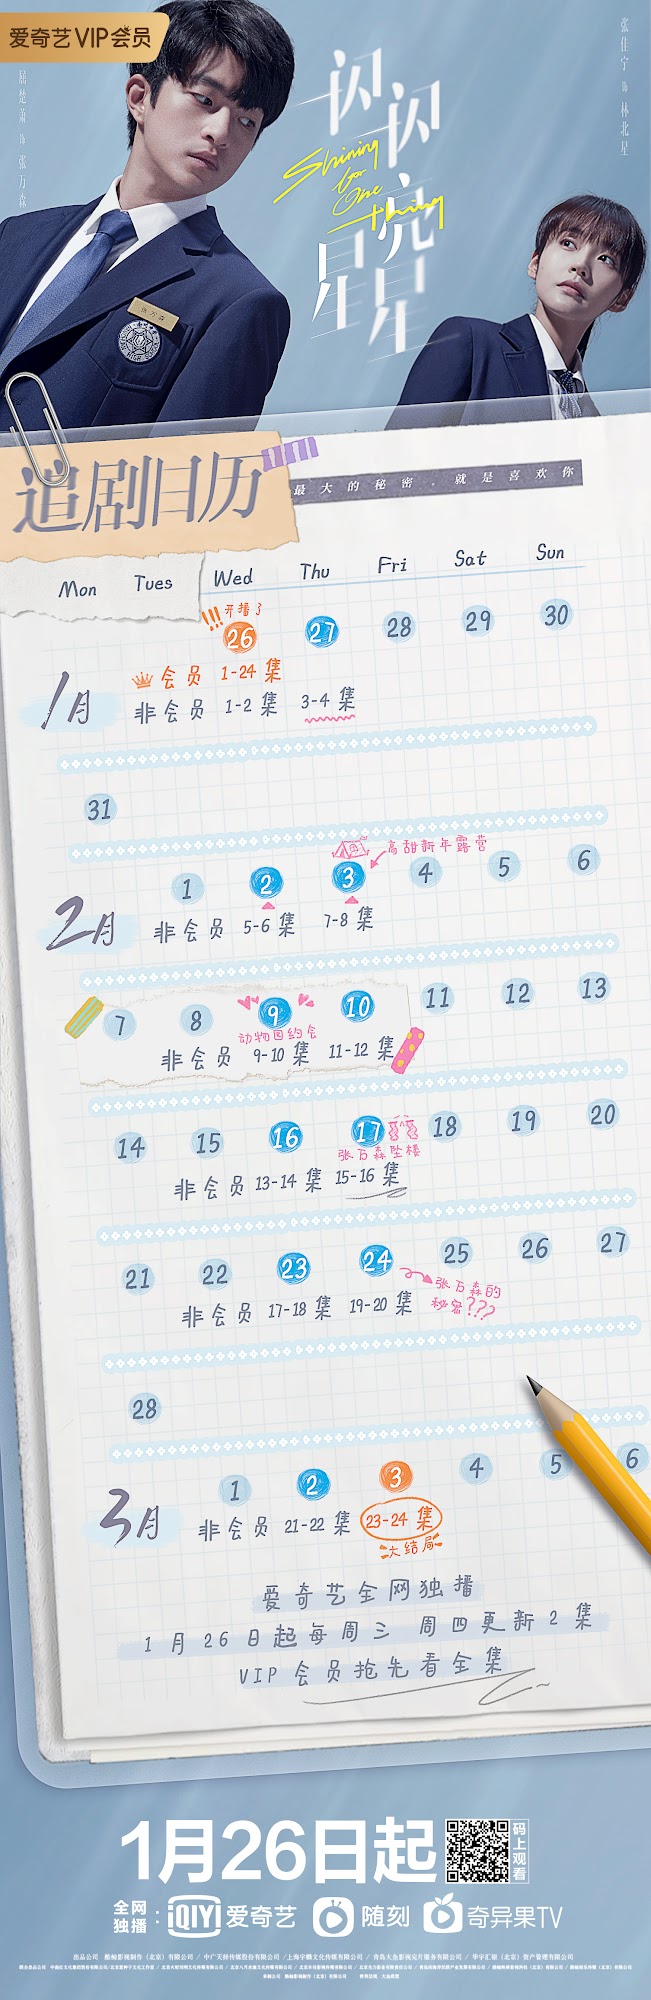 爱奇艺VIP会员
屈楚萧 饰 张万森
张佳宁 饰 林北星
闪闪亮星星
Shining for One thing
张万森
追剧日历
最大的秘密,就是喜欢你
Mon Tues Wed Thu Fri Sat Sun
!!! 开播了
26 27 28 29 30
1月
会员 1-24 集
非会员 1-2 集 3-4 集
31
高甜新年露营
1 2 3 4 5 6
2月
非会员 5-6 集 7-8 集
7 8 9 10 11 12 13
动物园约会
非会员 9-10 集 11-12 集
14 15 16 17 18 19 20
张万森坠楼
非会员 13-14 集 15-16 集
21 22 23 24 25 26 27
张万森的
秘密???
非会员 17-18 集 19-20 集
28
1 2 3 4 5 6
3月
非会员 21-22 集 23-24 集
大结局
爱奇艺全网独播
1月26日起每周三 周四更新2集
VIP会员抢先看全集
1月26日起
码上观看
全网独播:
iQIYI 爱奇艺 随刻 奇异果TV